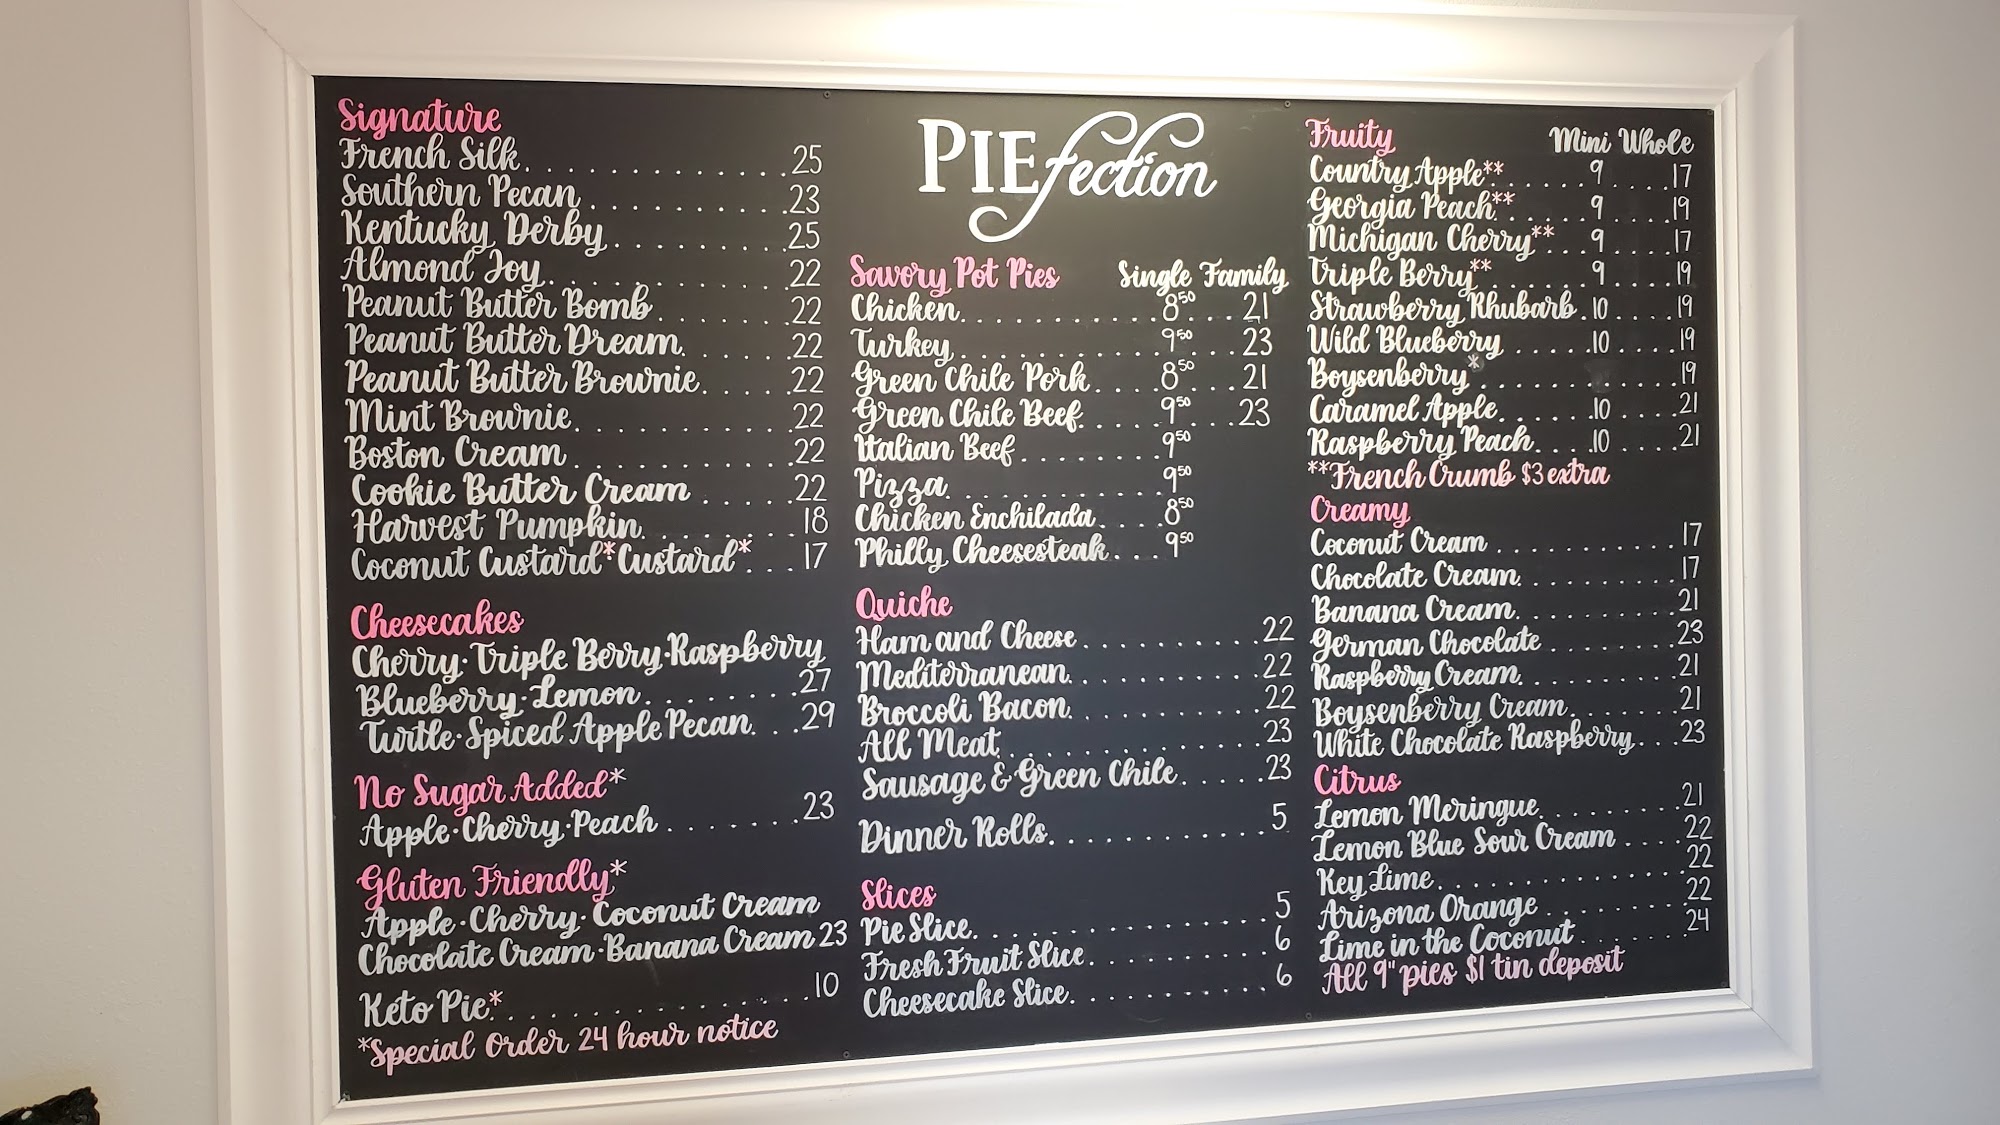 Signature
French Silk.............25
Southern Pecan..........23
Kentucky Derby.........25
Almond Joy............22
Peanut Butter Bomb.......22
Peanut Butter Dream......22
Peanut Butter Brownie.....22
Mint Brownie...........22
Boston Cream...........22
Cookie Butter Cream.....22
Harvest Pumpkin........18
Coconut Custard*Custard*...17
Cheesecakes
Cherry·Triple Berry·Raspberry
Blueberry·Lemon.......27
Turtle·Spiced Apple Pecan...29
No Sugar Added*
Apple·Cherry·Peach.......23
Gluten Friendly*
Apple·Cherry·Coconut Cream
Chocolate Cream·Banana Cream 23
Keto Pie*..............10
*Special Order 24 hour notice
PIEfection
Savory Pot Pies Single Family
Chicken..........8⁵⁰...21
Turkey..........9⁵⁰...23
Green Chile Pork....8⁵⁰...21
Green Chile Beef.....9⁵⁰...23
Italian Beef.......9⁵⁰
Pizza...........9⁵⁰
Chicken Enchilada....8⁵⁰
Philly Cheesesteak...9⁵⁰
Quiche
Ham and Cheese..........22
Mediterranean..........22
Broccoli Bacon..........22
All Meat.............23
Sausage & Green Chile.....23
Dinner Rolls...........5
Slices
Pie Slice.............5
Fresh Fruit Slice.........6
Cheesecake Slice.........6
Fruity Mini Whole
Country Apple**......9....17
Georgia Peach**.....9....19
Michigan Cherry**..9....17
Triple Berry**......9....19
Strawberry Rhubarb.10....19
Wild Blueberry.....10....19
Boysenberry*............19
Caramel Apple......10....21
Raspberry Peach....10....21
**French Crumb $3 extra
Creamy
Coconut Cream..........17
Chocolate Cream.........17
Banana Cream..........21
German Chocolate........23
Raspberry Cream.........21
Boysenberry Cream.......21
White Chocolate Raspberry...23
Citrus
Lemon Meringue.........21
Lemon Blue Sour Cream....22
Key Lime.............22
Arizona Orange.........22
Lime in the Coconut.......24
All 9" pies $1 tin deposit